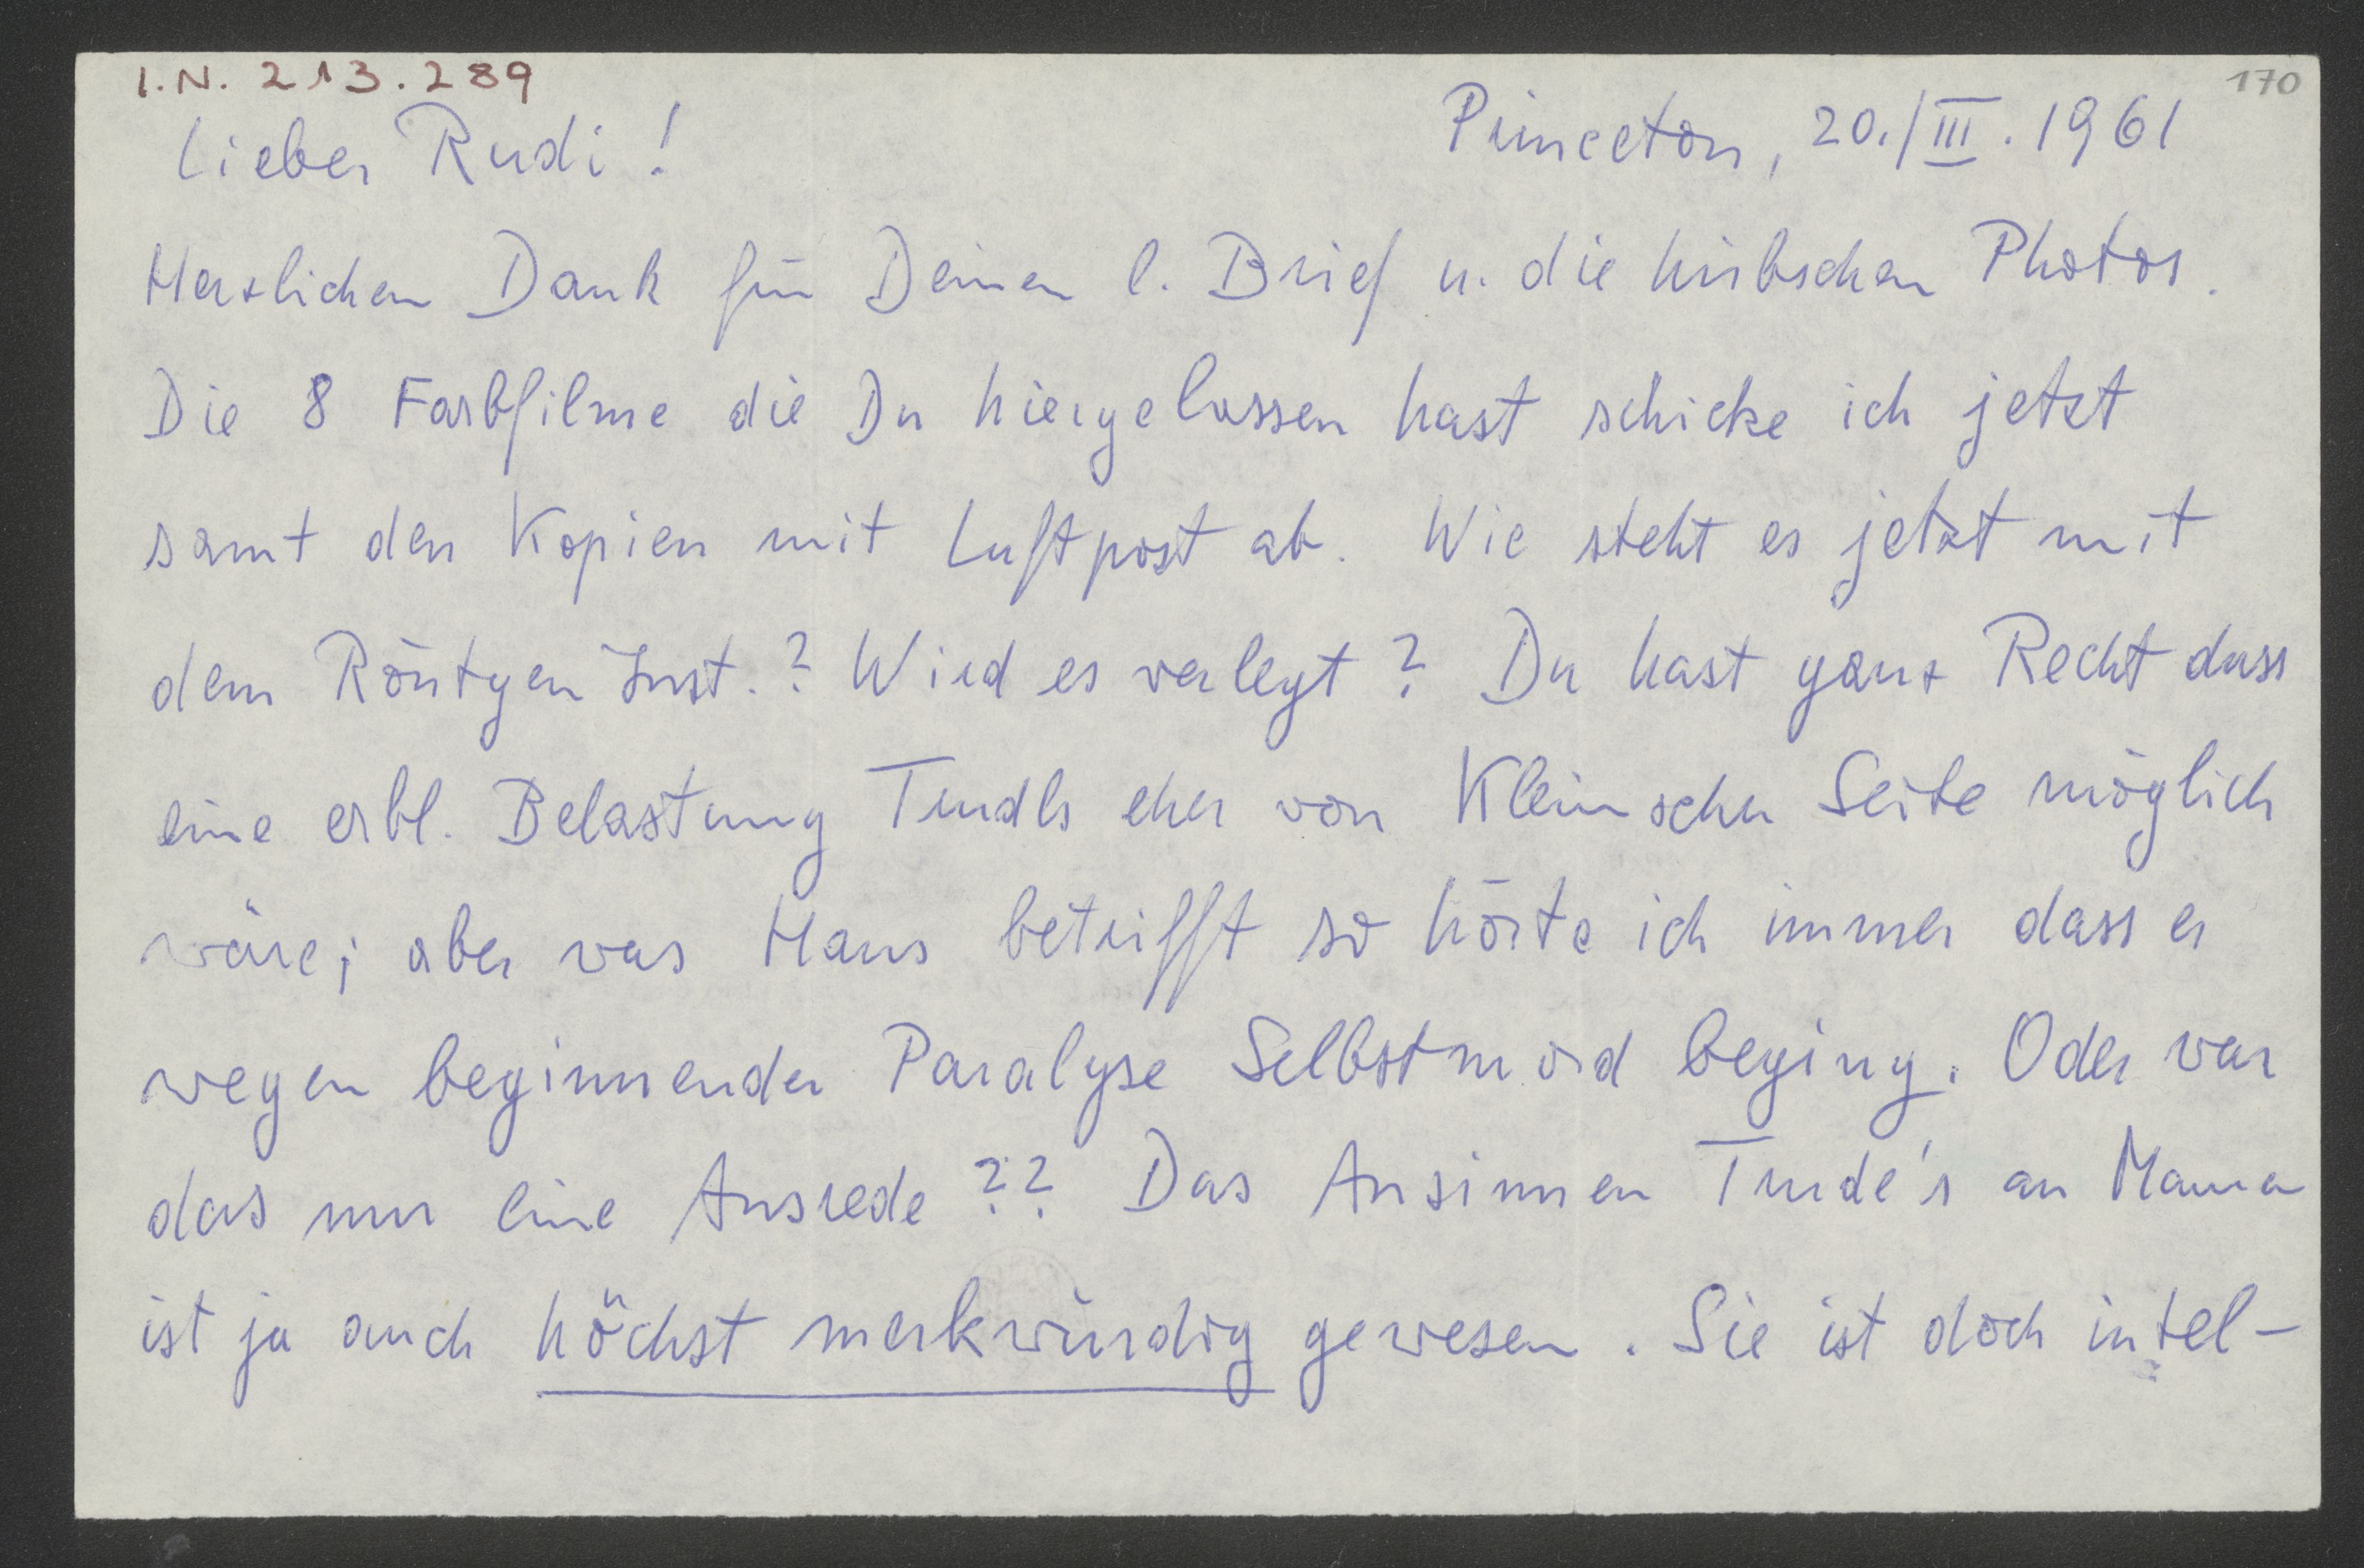 I.N. 213.289
170
Lieber Rudi!
Princeton, 20./III. 1961
Herzlichen Dank für Deinen l. Brief u. die hübschen Photos.
Die 8 Farbfilme die Du hiergelassen hast schicke ich jetzt
samt den Kopien mit Luftpost ab. Wie steht es jetzt mit
dem Röntgen Inst.? Wird es verlegt? Du hast ganz Recht dass
eine erbl. Belastung Trudls eher von Kleinscher Seite möglich
wäre; aber was Hans betrifft so hörte ich immer dass er
wegen beginnender Paralyse Selbstmord beging. Oder war
das nur eine Ausrede?? Das Ansinnen Trude's an Mama
ist ja auch höchst merkwürdig gewesen. Sie ist doch intel-